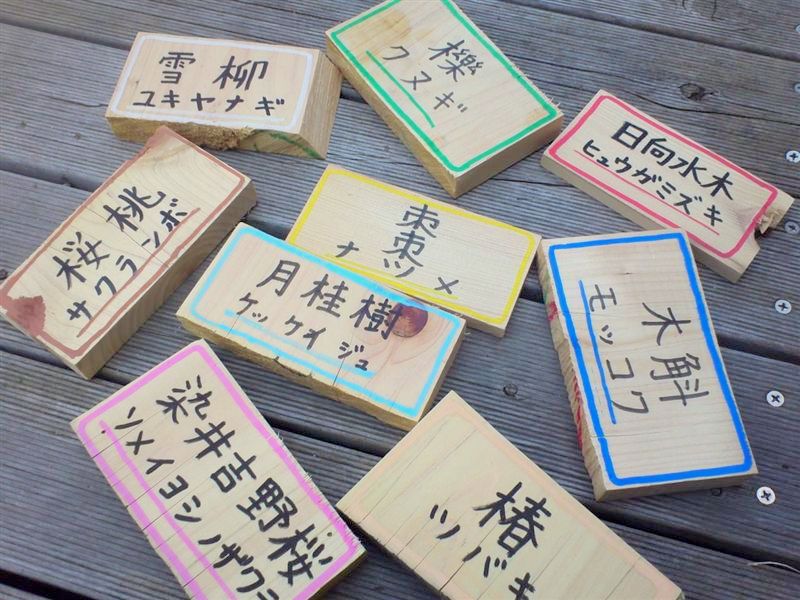 雪柳
ユキヤナギ
櫟
クヌギ
日向水木
ヒュウガミズキ
桜桃
サクランボ
棗
ナツメ
月桂樹
ゲッケイジュ
木斛
モッコク
染井吉野桜
ソメイヨシノザクラ
椿
ツバキ